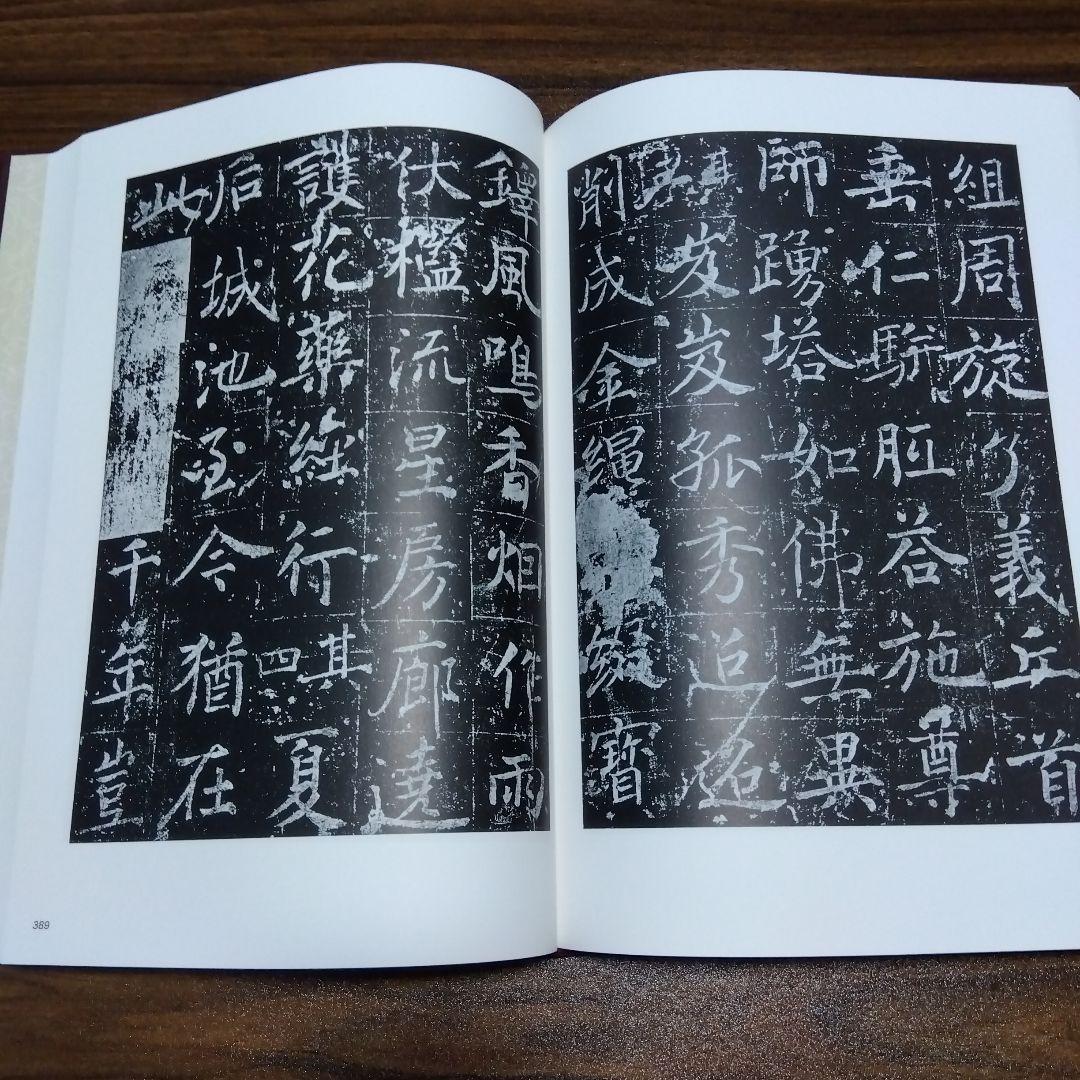 組周旋義丘首
垂仁駢荅施尊
師踴塔如佛無異
其岌岌孤秀迢迢
削成金繩綴寶
鐸風鳴香烟作雨
伏檻流星房廊遶
護花藥經行其四夏
后城池至今猶在
此千年豈
389